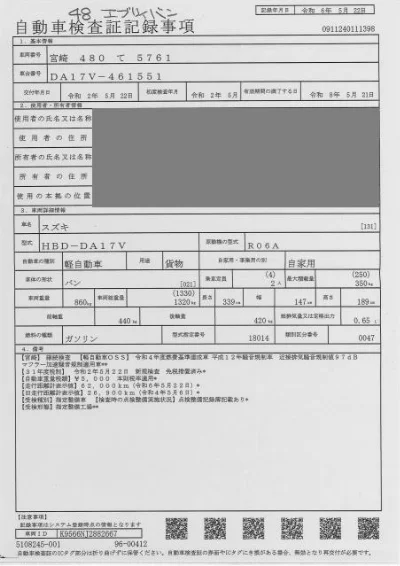 48 エブリィバン
自動車検査証記録事項
記録年月日 令和 6年 5月 22日
0911240111398
1．基本情報
車両番号 宮崎 480 て 5761
車台番号 DA17V-461551
交付年月日 令和 2年 5月 22日 初度検査年月 令和 2年 5月 有効期間の満了する日 令和 8年 5月 21日
2．使用者・所有者情報
使用者の氏名又は名称
使用者の住所
所有者の氏名又は名称
所有者の住所
使用の本拠の位置
3．車両詳細情報
車名 スズキ [131]
型式 HBD-DA17V 原動機の型式 R06A
自動車の種別 軽自動車 用途 貨物 自家用・事業用の別 自家用
車体の形状 バン [021] 乗車定員 (4) 2人 最大積載量 (250) 350kg
車両重量 860kg 車両総重量 (1330) 1320kg 長さ 339cm 幅 147cm 高さ 189cm
前軸重 440kg 後軸重 420kg 総排気量又は定格出力 0.65L
燃料の種類 ガソリン 型式指定番号 18014 類別区分番号 0047
4．備考
【宮崎】 継続検査 【軽自動車OSS】 令和4年度燃費基準達成車 平成12年騒音規制車 近接排気騒音規制値97dB
マフラー加速騒音規制適用車**
【31年度税制】 令和2年5月22日 新規検査 免税措置済み*
【自動車重量税額】 ¥5,000 本則税率適用*
【走行距離計表示値】 62,000km（令和6年5月22日）*
【旧走行距離計表示値】 26,900km（令和4年5月6日）*
【受検種別】指定整備車 【検査時の点検整備実施状況】点検整備記録簿記載あり*
【受検形態】指定整備工場**
【注意事項】
記録事項はシステム登録時点の情報となります
車両ID K9566NJ2882667
5108245-001 96-00412
自動車検査証のICタグ部分は折り曲げずに保管ください。自動車検査証の券面やICタグにき損がある場合、無効となり再交付が必要です。